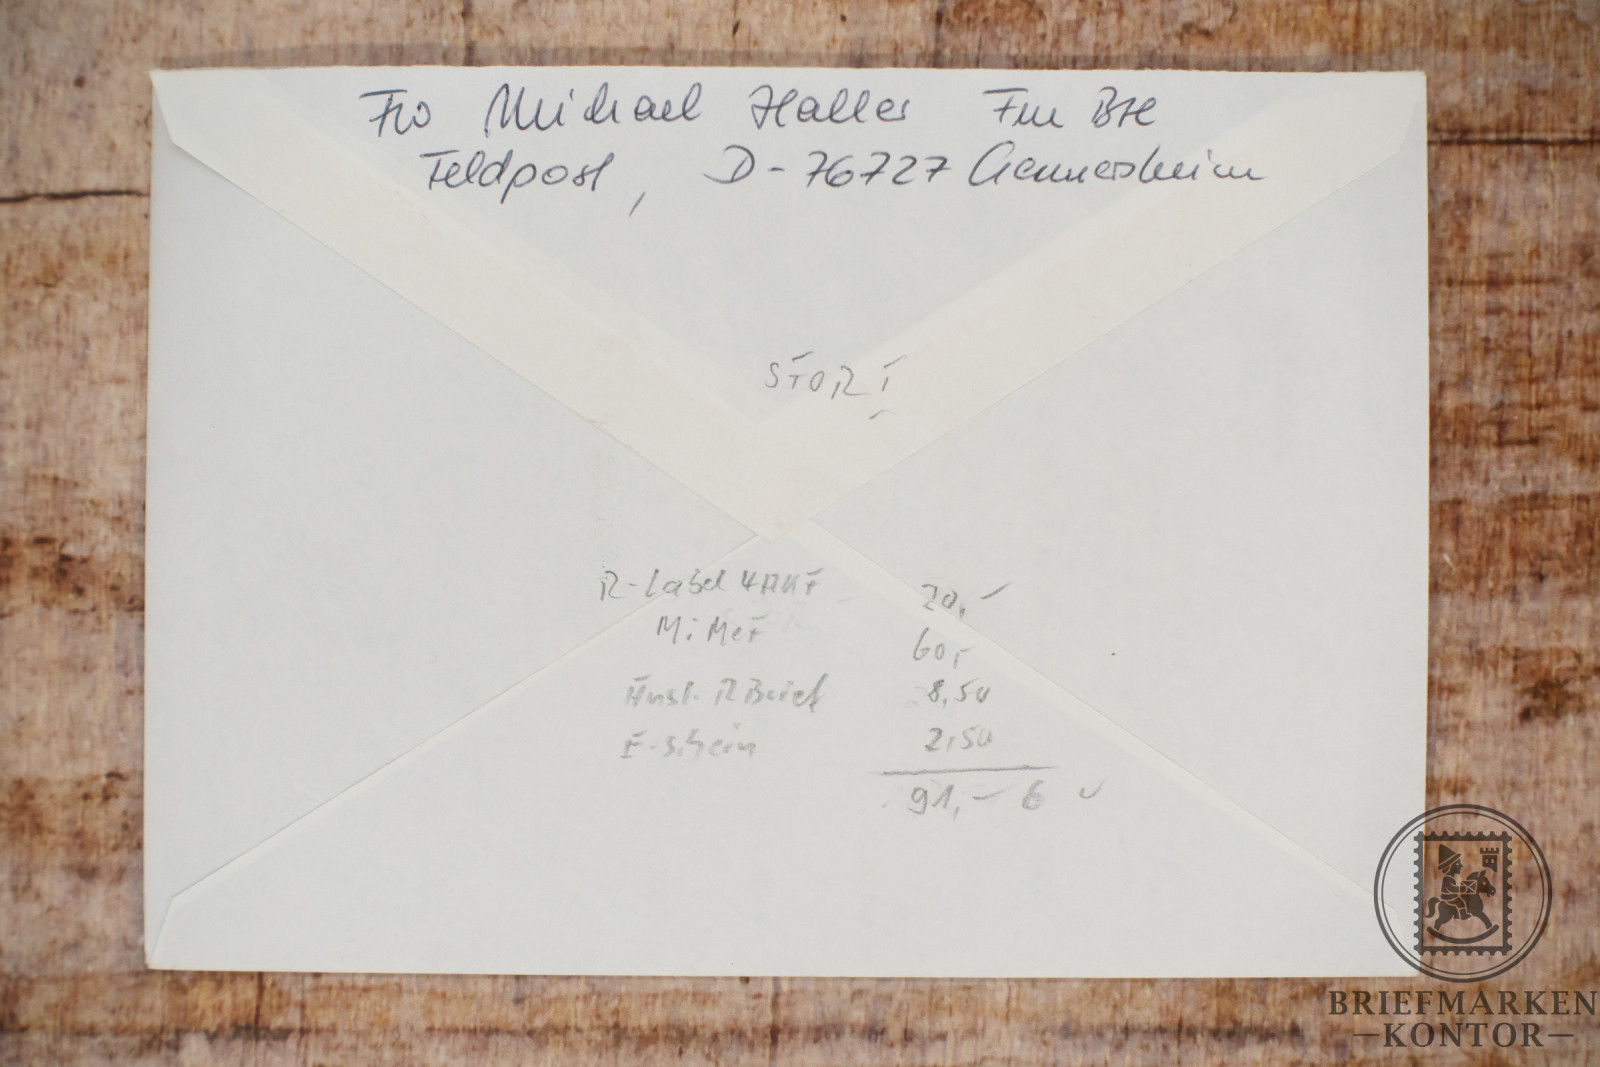 Fw Michael Haller Fm Btl
Feldpost, D-76727 Germersheim
STORT
R-Label 4 
MiMeF
20,-
60,-
Ausl. R Brief 8,50
E-schein 2,50
91,- €
BRIEFMARKEN
KONTOR